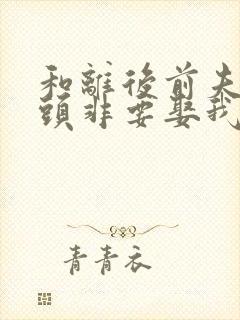 和離後前夫
頭非要娶我
青青衣